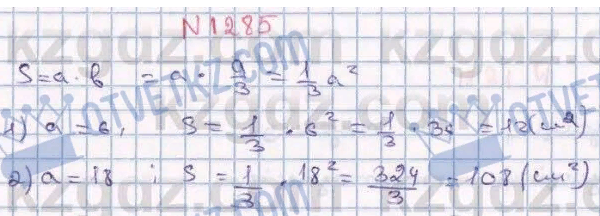 N1285
S=a·в = a · a/3 = 1/3 a²
1) a=6, S = 1/3 · 6² = 1/3 · 36 = 12 (см²)
2) a=18 ; S = 1/3 · 18² = 324/3 = 108 (см²)
kzgdz.com
OTVETKZ.COM